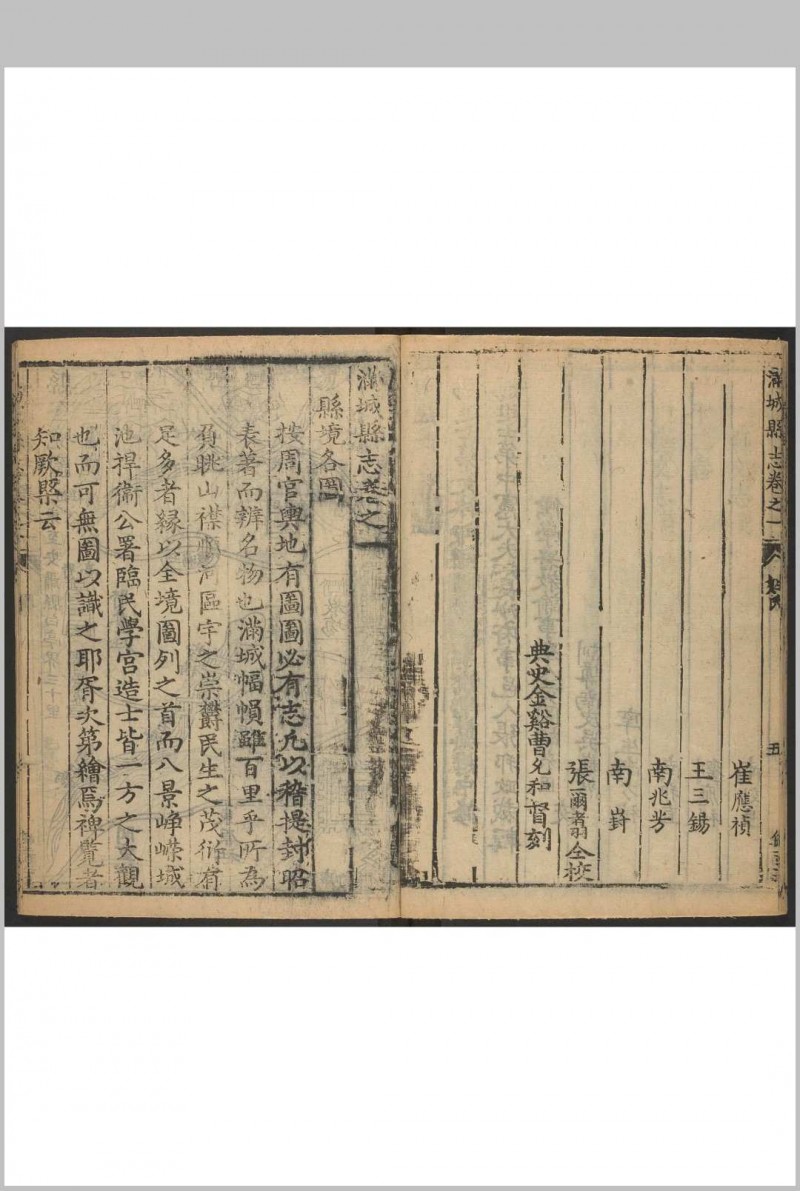 滿城縣志卷之一
五
崔應禎
王三錫
南兆芳
南𡵆
張爾翥仝校
典史金谿曹允和督刻
滿城縣志卷之一
縣境各圖
按周官輿地有圖圖必有志凡以稽提封昭
表著而辨名物也滿城幅幀雖百里乎所為
負眺山襟順河區宇之崇欝民生之茂衍有
足多者緣以全境圖列之首而八景崢嶸城
池捍衛公署臨民學宫造士皆一方之大觀
也而可無圖以識之耶胥次第繪焉裨覽者
知厥槩云